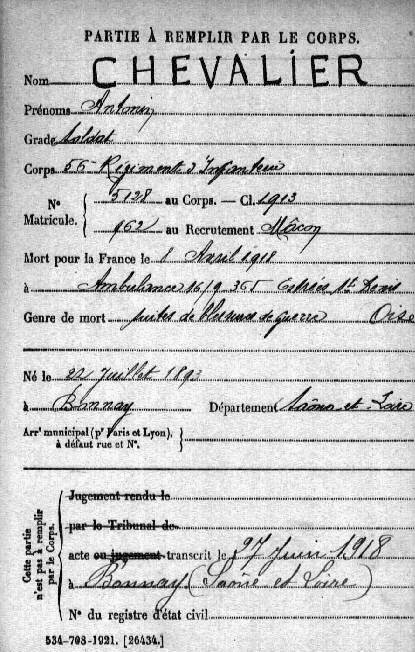 PARTIE À REMPLIR PAR LE CORPS.
Nom CHEVALIER
Prénoms Antonin
Grade Soldat
Corps 56 Régiment d'Infanterie
N° Matricule. { 5128 au Corps. — Cl. 1913
962 au Recrutement Mâcon
Mort pour la France le 1 Avril 1918
à Ambulance 16/9 Estrées St Denis
Genre de mort suites de blessures de guerre Oise
Né le 22 Juillet 1893
à Bonnay Département Saône-et-Loire
Arrt municipal (pr Paris et Lyon), à défaut rue et N°. }
Cette partie n'est pas à remplir par le Corps. {
Jugement rendu le
par le Tribunal de
acte ou jugement transcrit le 27 Juin 1918
à Bonnay (Saône et Loire)
N° du registre d'état civil
534-708-1921. [26434.]